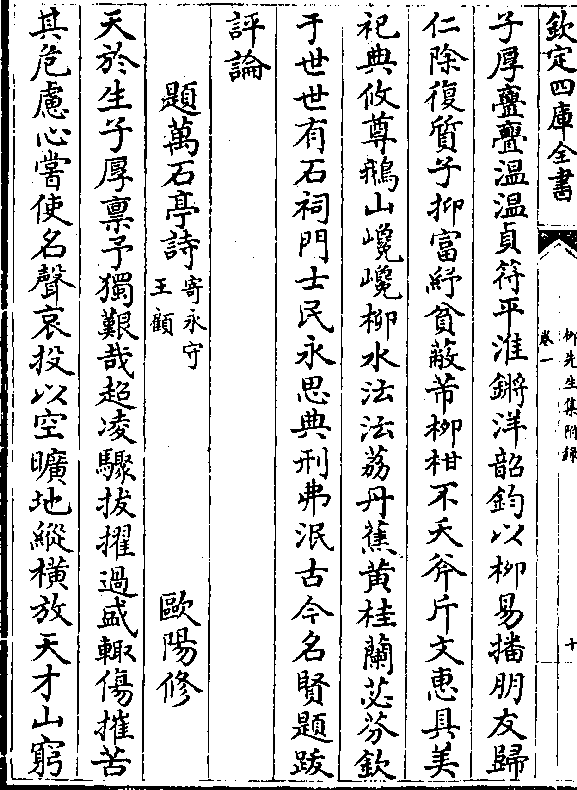 欽定四庫全書
柳先生集附録
卷一
十
子厚亹亹溫溫貞符平淮鏘洋韶鈞以柳易播朋友歸
仁除復質子抑富紓貧蔽芾柳柑不夭斧斤文惠具美
祀典攸尊鵝山巉巉柳水法法荔丹蕉黄桂蘭苾芬欽
于世世有石祠門士民永思典刑弗泯古今名賢題跋
評論
題萬石亭詩寄永守王顧 歐陽修
天於生子厚禀予獨艱哉超凌驟拔擢過盛輙傷摧苦
其危慮心嘗使名聲哀投以空曠地縱横放天才山窮